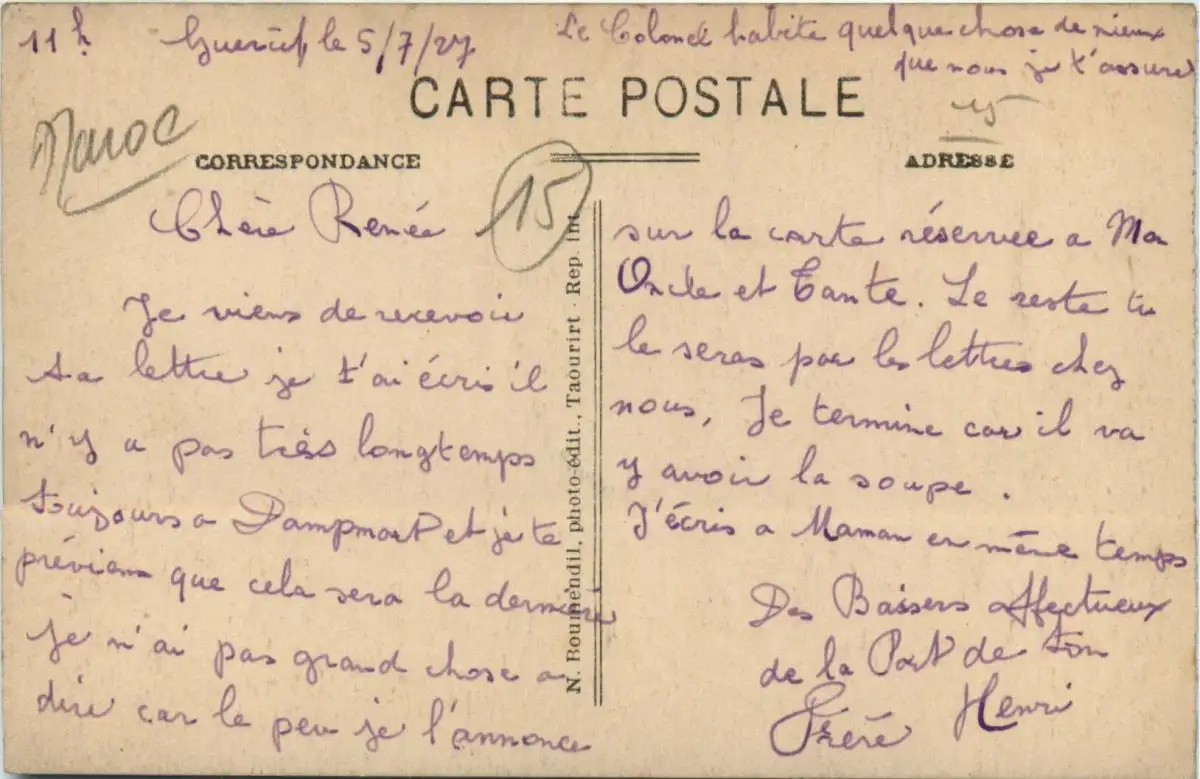 11h Guercif, le 5/7/27
Le Colonel habite quelque chose de mieux
que nous je t'assure
CARTE POSTALE
Maroc
15
CORRESPONDANCE
15
ADRESSE
Chère Renée
Je viens de recevoir
ta lettre je t'ai écris il
n'y a pas très longtemps
toujours a Dampmart et je te
préviens que cela sera la dernière
je n'ai pas grand chose a
dire car le peu je l'annonce
N. Boumendil, photo-édit., Taourirt - Rep. int.
sur la carte réservee a Mon
Oncle et Tante. Le reste tu
le seras par les lettres chez
nous, Je termine car il va
y avoir la soupe.
J'écris a Maman en même temps
Des Baisers Affectueux
de la Part de ton
Frère Henri